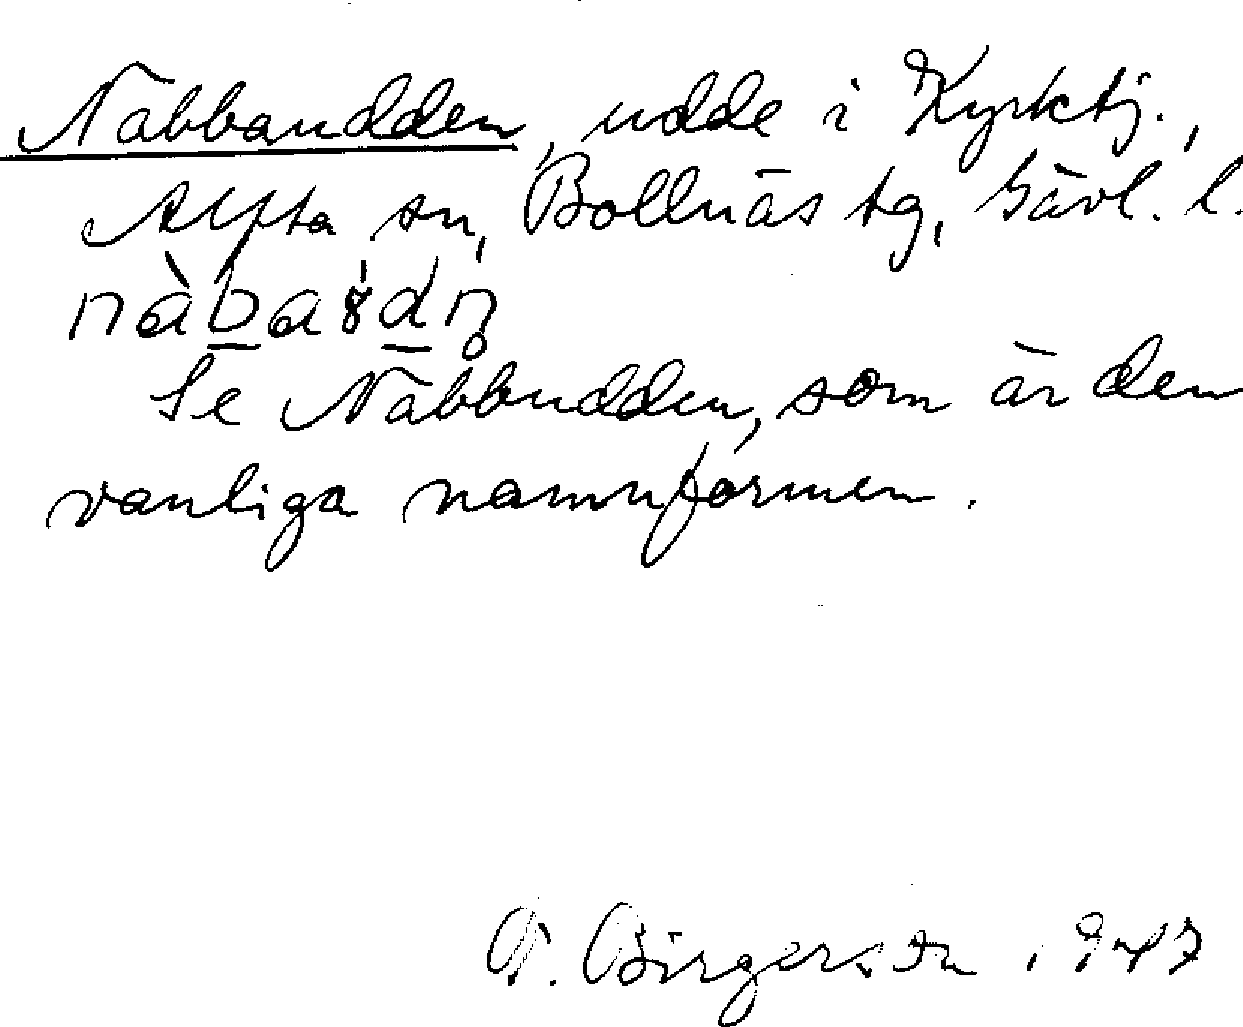 Nabbaudden, udde i Kyrktj.,
Alfta sn, Bollnäs tg, Gävl. l.
nàba8́dn̥
Se Nabbudden, som är den
vanliga namnformen.
Birgerson 1947